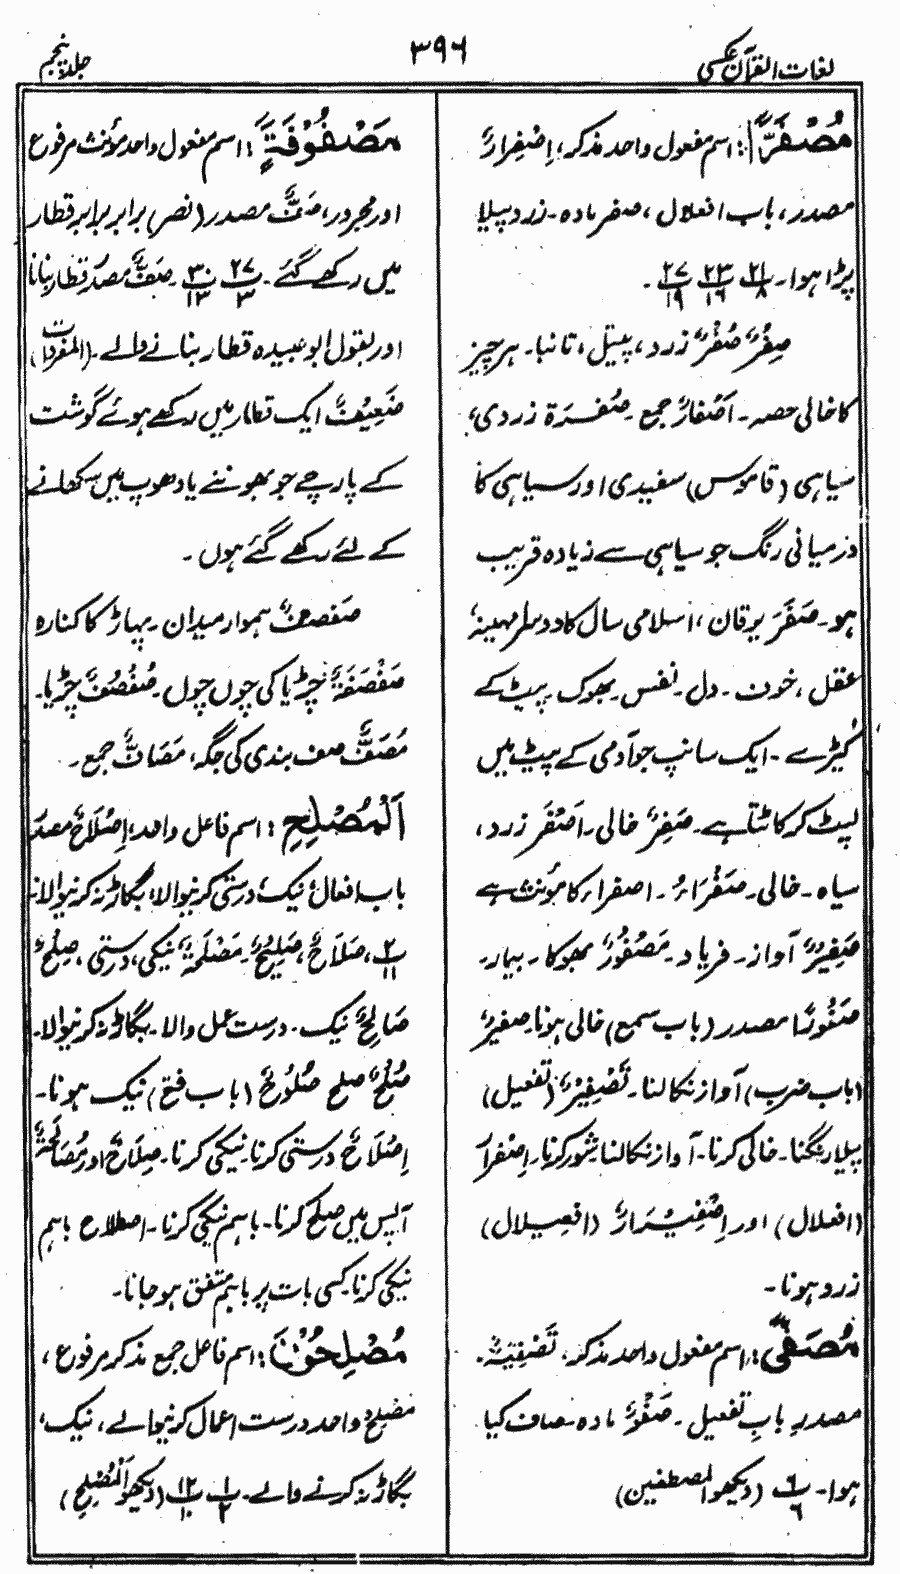 لغات القرآن عکسی
۳۹۶
جلد پنجم
مُصْفَرًّا: اسم مفعول واحد مذکر، اِصْفِرَارٌ
مصدر، باب افعلال، صفر مادہ۔ زرد پیلا
پڑا ہوا۔ پ ۲۱/۸ پ ۲۳/۱۶ پ ۲۷/۱۹ ۔
صِفْرٌ صُفْرٌ زرد، پیتل، تانبا۔ ہر چیز
کا خالی حصہ۔ اَصْفَارٌ جمع۔ صُفْرَۃ زردی،
سیاہی (قاموس) سفیدی اور سیاہی کا
درمیانی رنگ جو سیاہی سے زیادہ قریب
ہو۔ صَفَر یرقان، اسلامی سال کا دوسرا مہینہ
عقل، خون۔ دل۔ نفس۔ بھوک۔ پیٹ کے
کیڑے۔ ایک سانپ جو آدمی کے پیٹ میں
لپٹ کر کاٹتا ہے۔ صَفِرٌ خالی۔ اَصْفَر زرد،
سیاہ۔ خالی۔ صَفْرَاءُ۔ اصفراء کا مؤنث ہے
صَفِیْرٌ آواز۔ فریاد۔ مَصْفُوْرٌ بھوکا۔ بیمار۔
صَفُوْرًا مصدر (باب سمع) خالی ہونا۔ صفیرٌ
(باب ضرب) آواز نکالنا۔ تَصْفِیْرٌ (تفعیل)
پیلا رنگنا۔ خالی کرنا۔ آواز نکالنا۔ شور کرنا۔ اِصْفِرَار
(افعلال) اور اِصْفِیْرَارٌ (افعیلال)
زرد ہونا۔
مُصَفًّی: اسم مفعول واحد مذکر، تَصْفِیَۃ۔
مصدر باب تفعیل۔ صَفْوٌ مادہ۔ صاف کیا
ہوا۔ پ ۶/۶ (دیکھو المصطفین)
مَصْفُوْفَۃٍ: اسم مفعول واحد مؤنث مرفوع
اور مجرور، صَفٌّ مصدر (نصر) برابر برابر قطار
میں رکھے گئے۔ پ ۲۷/۳ پ ۳۰/۱۳ ۔ صَفٌّ مصدر قطار بنانا
اور بقول ابو عبیدہ قطار بنانے والے۔ (المفردات)
صَفِیْفٌ ایک قطار میں رکھے ہوئے گوشت
کے پارچے جو بھوننے یا دھوپ میں سکھانے
کے لئے رکھے گئے ہوں۔
صَفصفٌ ہموار میدان۔ پہاڑ کا کنارہ
صَفْصَفَۃٌ چڑیا کی چوں چوں۔ صُفْصُفٌ چڑیا۔
مَصَفٌّ صف بندی کی جگہ، مَصَافٌّ جمع۔
اَلْمُصْلِحِ: اسم فاعل واحد، اِصْلَاحٌ مصدر
باب افعال نیک، درستی کرنیوالا، بگاڑ نہ کرنیوالا۔
پ ۲/۱۱، صَلَاحٌ، صَلِیْحٌ۔ مَصْلَحَۃٌ نیکی، درستی، صلحٌ
صَالِحٌ نیک۔ درست عمل والا۔ بگاڑ نہ کرنیوالا۔
صُلْحٌ صلح صُلُوْحٌ (باب فتح) نیک ہونا۔
اِصْلَاحٌ درستی کرنا۔ نیکی کرنا۔ صِلَاحٌ اور مُصَالَحَۃٌ
آپس میں صلح کرنا۔ باہم نیکی کرنا۔ اصطلاح باہم
نیکی کرنا۔ کسی بات پر باہم متفق ہو جانا۔
مُصْلِحُوْنَ: اسم فاعل جمع مذکر مرفوع،
مصلحٌ واحد درست اعمال کرنیوالے، نیک،
بگاڑ نہ کرنے والے۔ پ ۱/۲ پ ۱۲/۱۰ (دیکھو اَلْمُصْلِحِ)